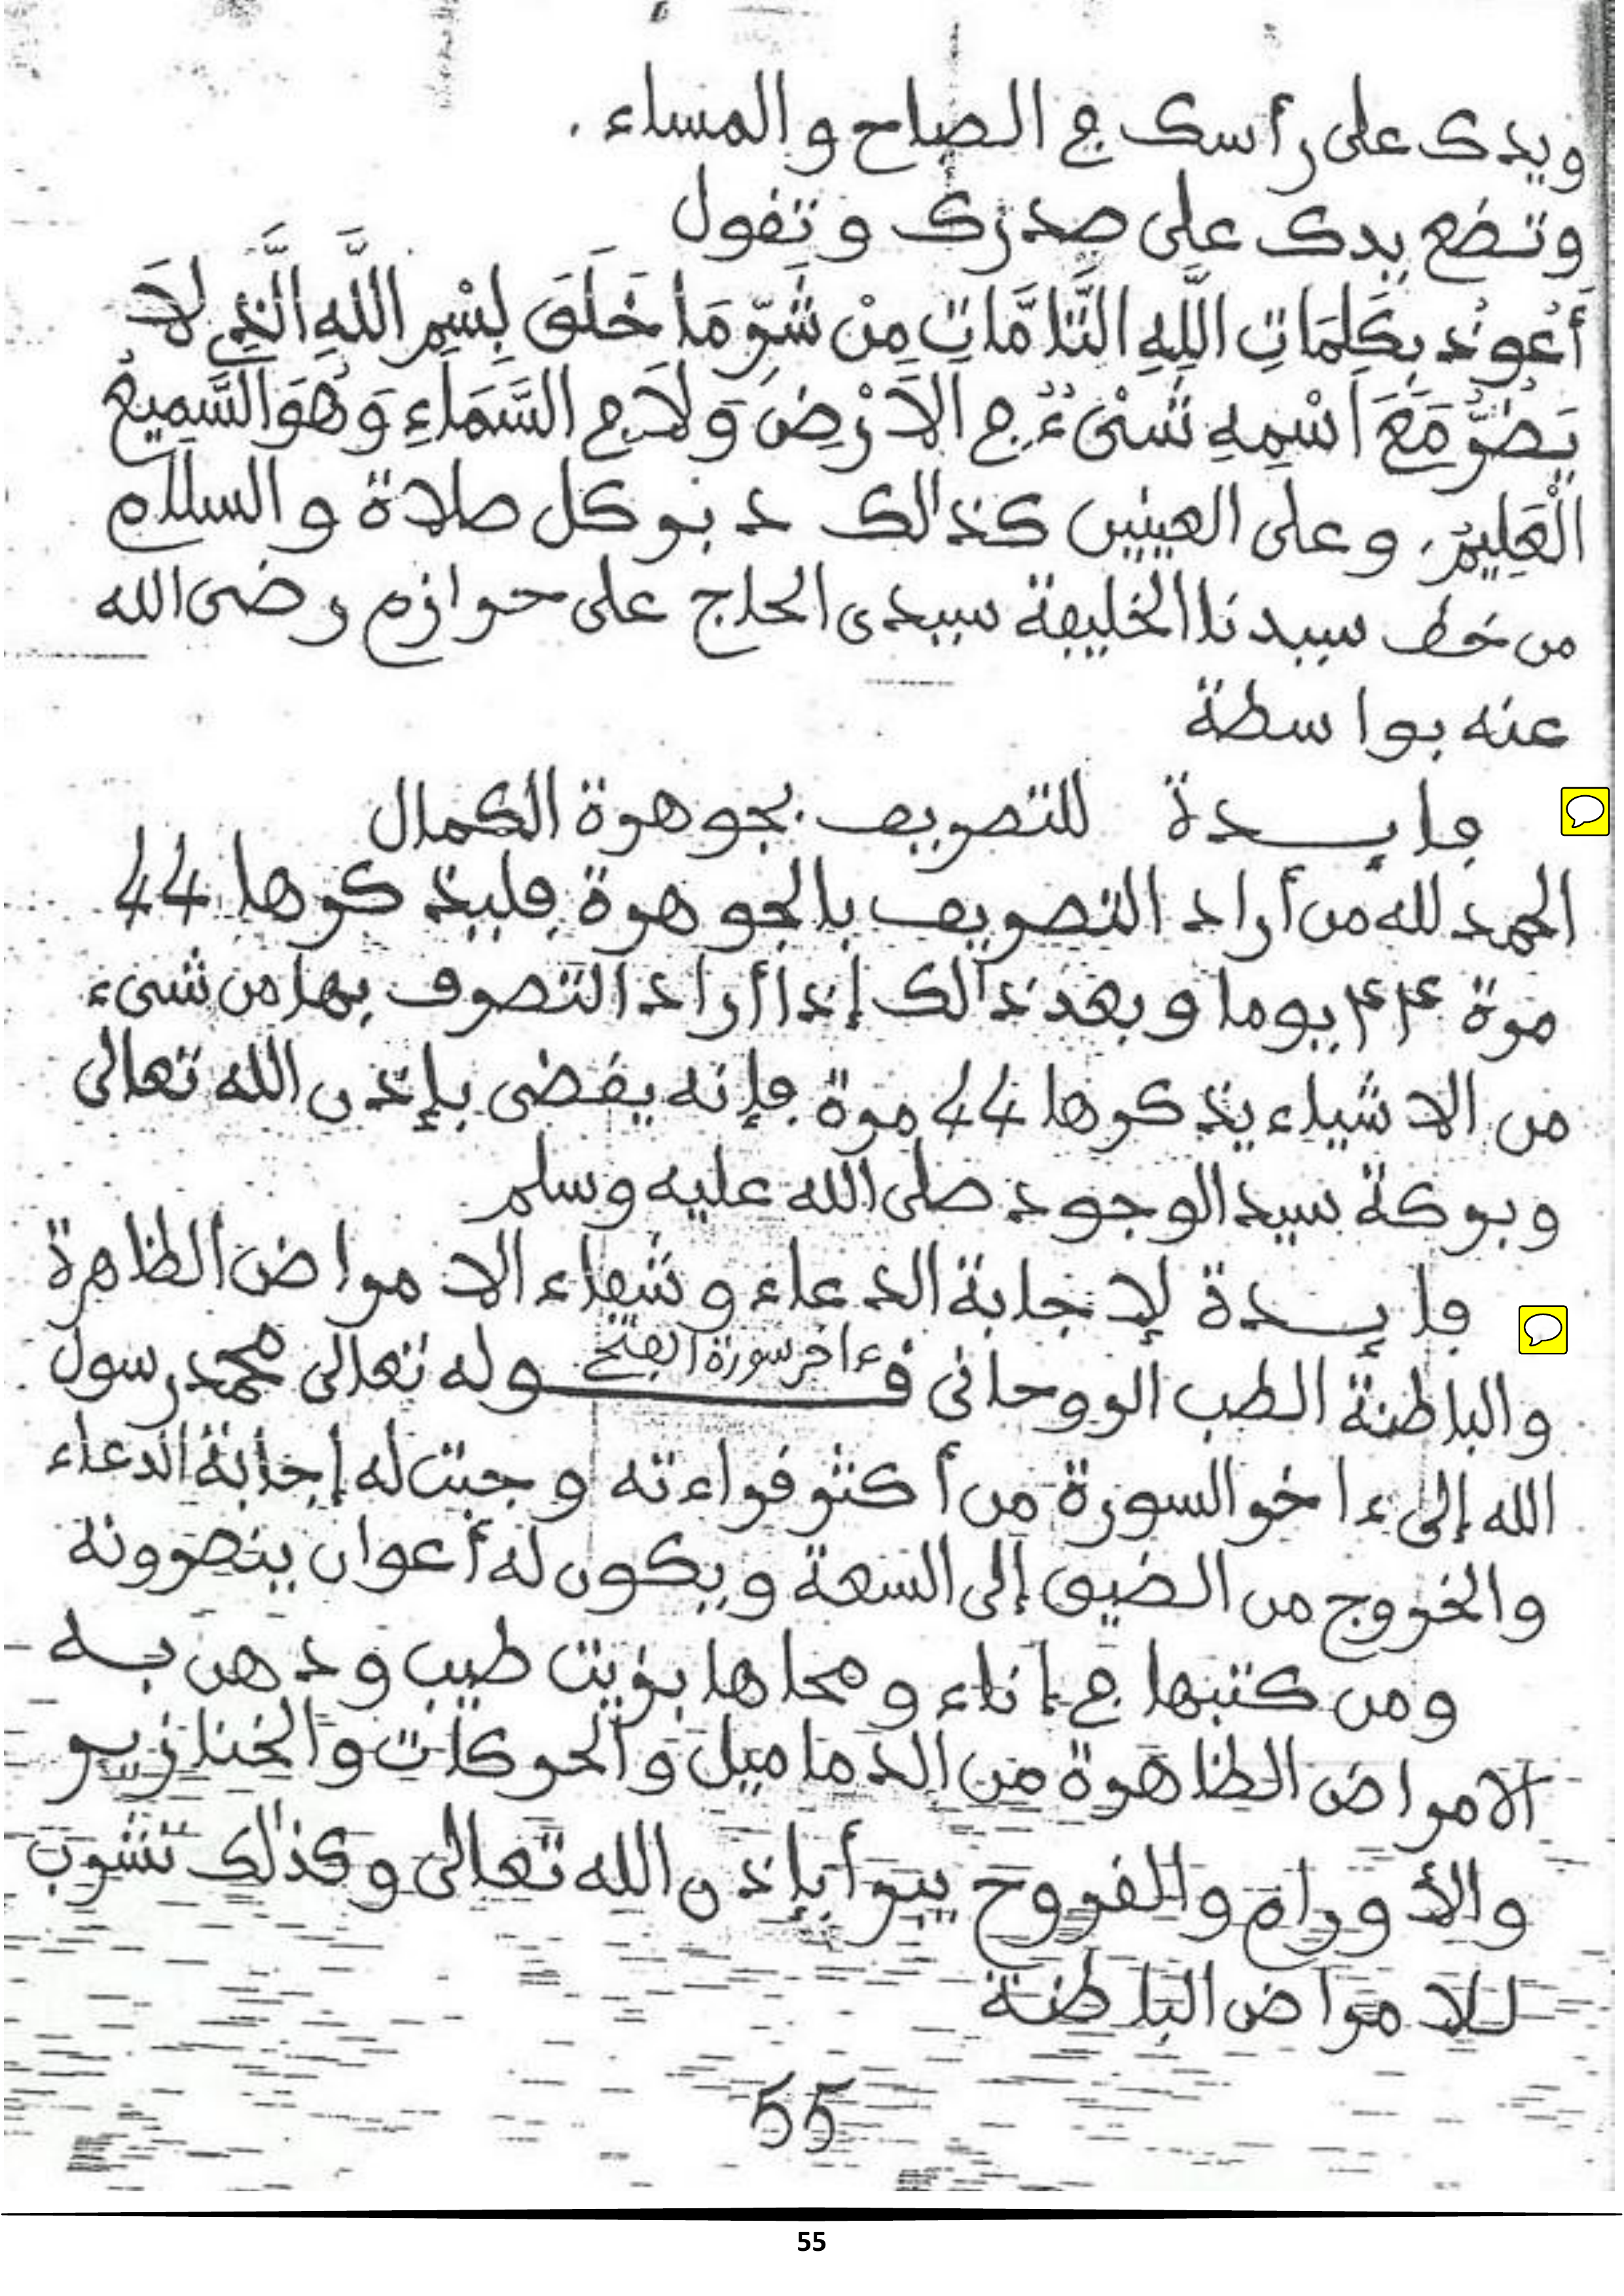 ويدك على رأسك في الصباح والمساء .
وتضع يدك على صدرك وتقول
أَعُوذُ بِكَلِمَاتِ اللَّهِ التَّامَّاتِ مِنْ شَرِّ مَا خَلَقَ بِسْمِ اللَّهِ الَّذِي لَا
يَضُرُّ مَعَ اسْمِهِ شَيْءٌ فِي الْأَرْضِ وَلَا فِي السَّمَاءِ وَهُوَ السَّمِيعُ
الْعَلِيمُ، وعلى العينين كذالك دبر كل صلاة والسلام
من خط سيدنا الخليفة سيدى الحاج على حرازم رضى الله
عنه بواسطة
فايـــدة للتصريف بجوهرة الكمال
الحمد لله من أراد التصريف بالجوهرة فليذكرها 44
مرة ۴۴ يوما وبعد ذالك إذا أراد التصرف بها من شىء
من الاشياء يذكرها 44 مرة فإنه يقضى بإذن الله تعالى
وبركة سيد الوجود صلى الله عليه وسلم
فايـــدة لإجابة الدعاء وشفاء الامراض الظاهرة
والباطنة الطب الروحانى قـــوله تعالى محمد رسول
ءاخر سورة الفتح
الله إلى ءاخر السورة من أكثر قراءته وجبت له إجابة الدعاء
والخروج من الضيق إلى السعة ويكون له أعوان ينصرونه
ومن كتبها في اناء ومحاها بزيت طيب ودهن بـه
الامراض الظاهرة من الدماميل والحركات والخنازيـر
والأورام والقروح يبرأ بإذن الله تعالى وكذلك تشرب
للامراض الباطنة
55
55